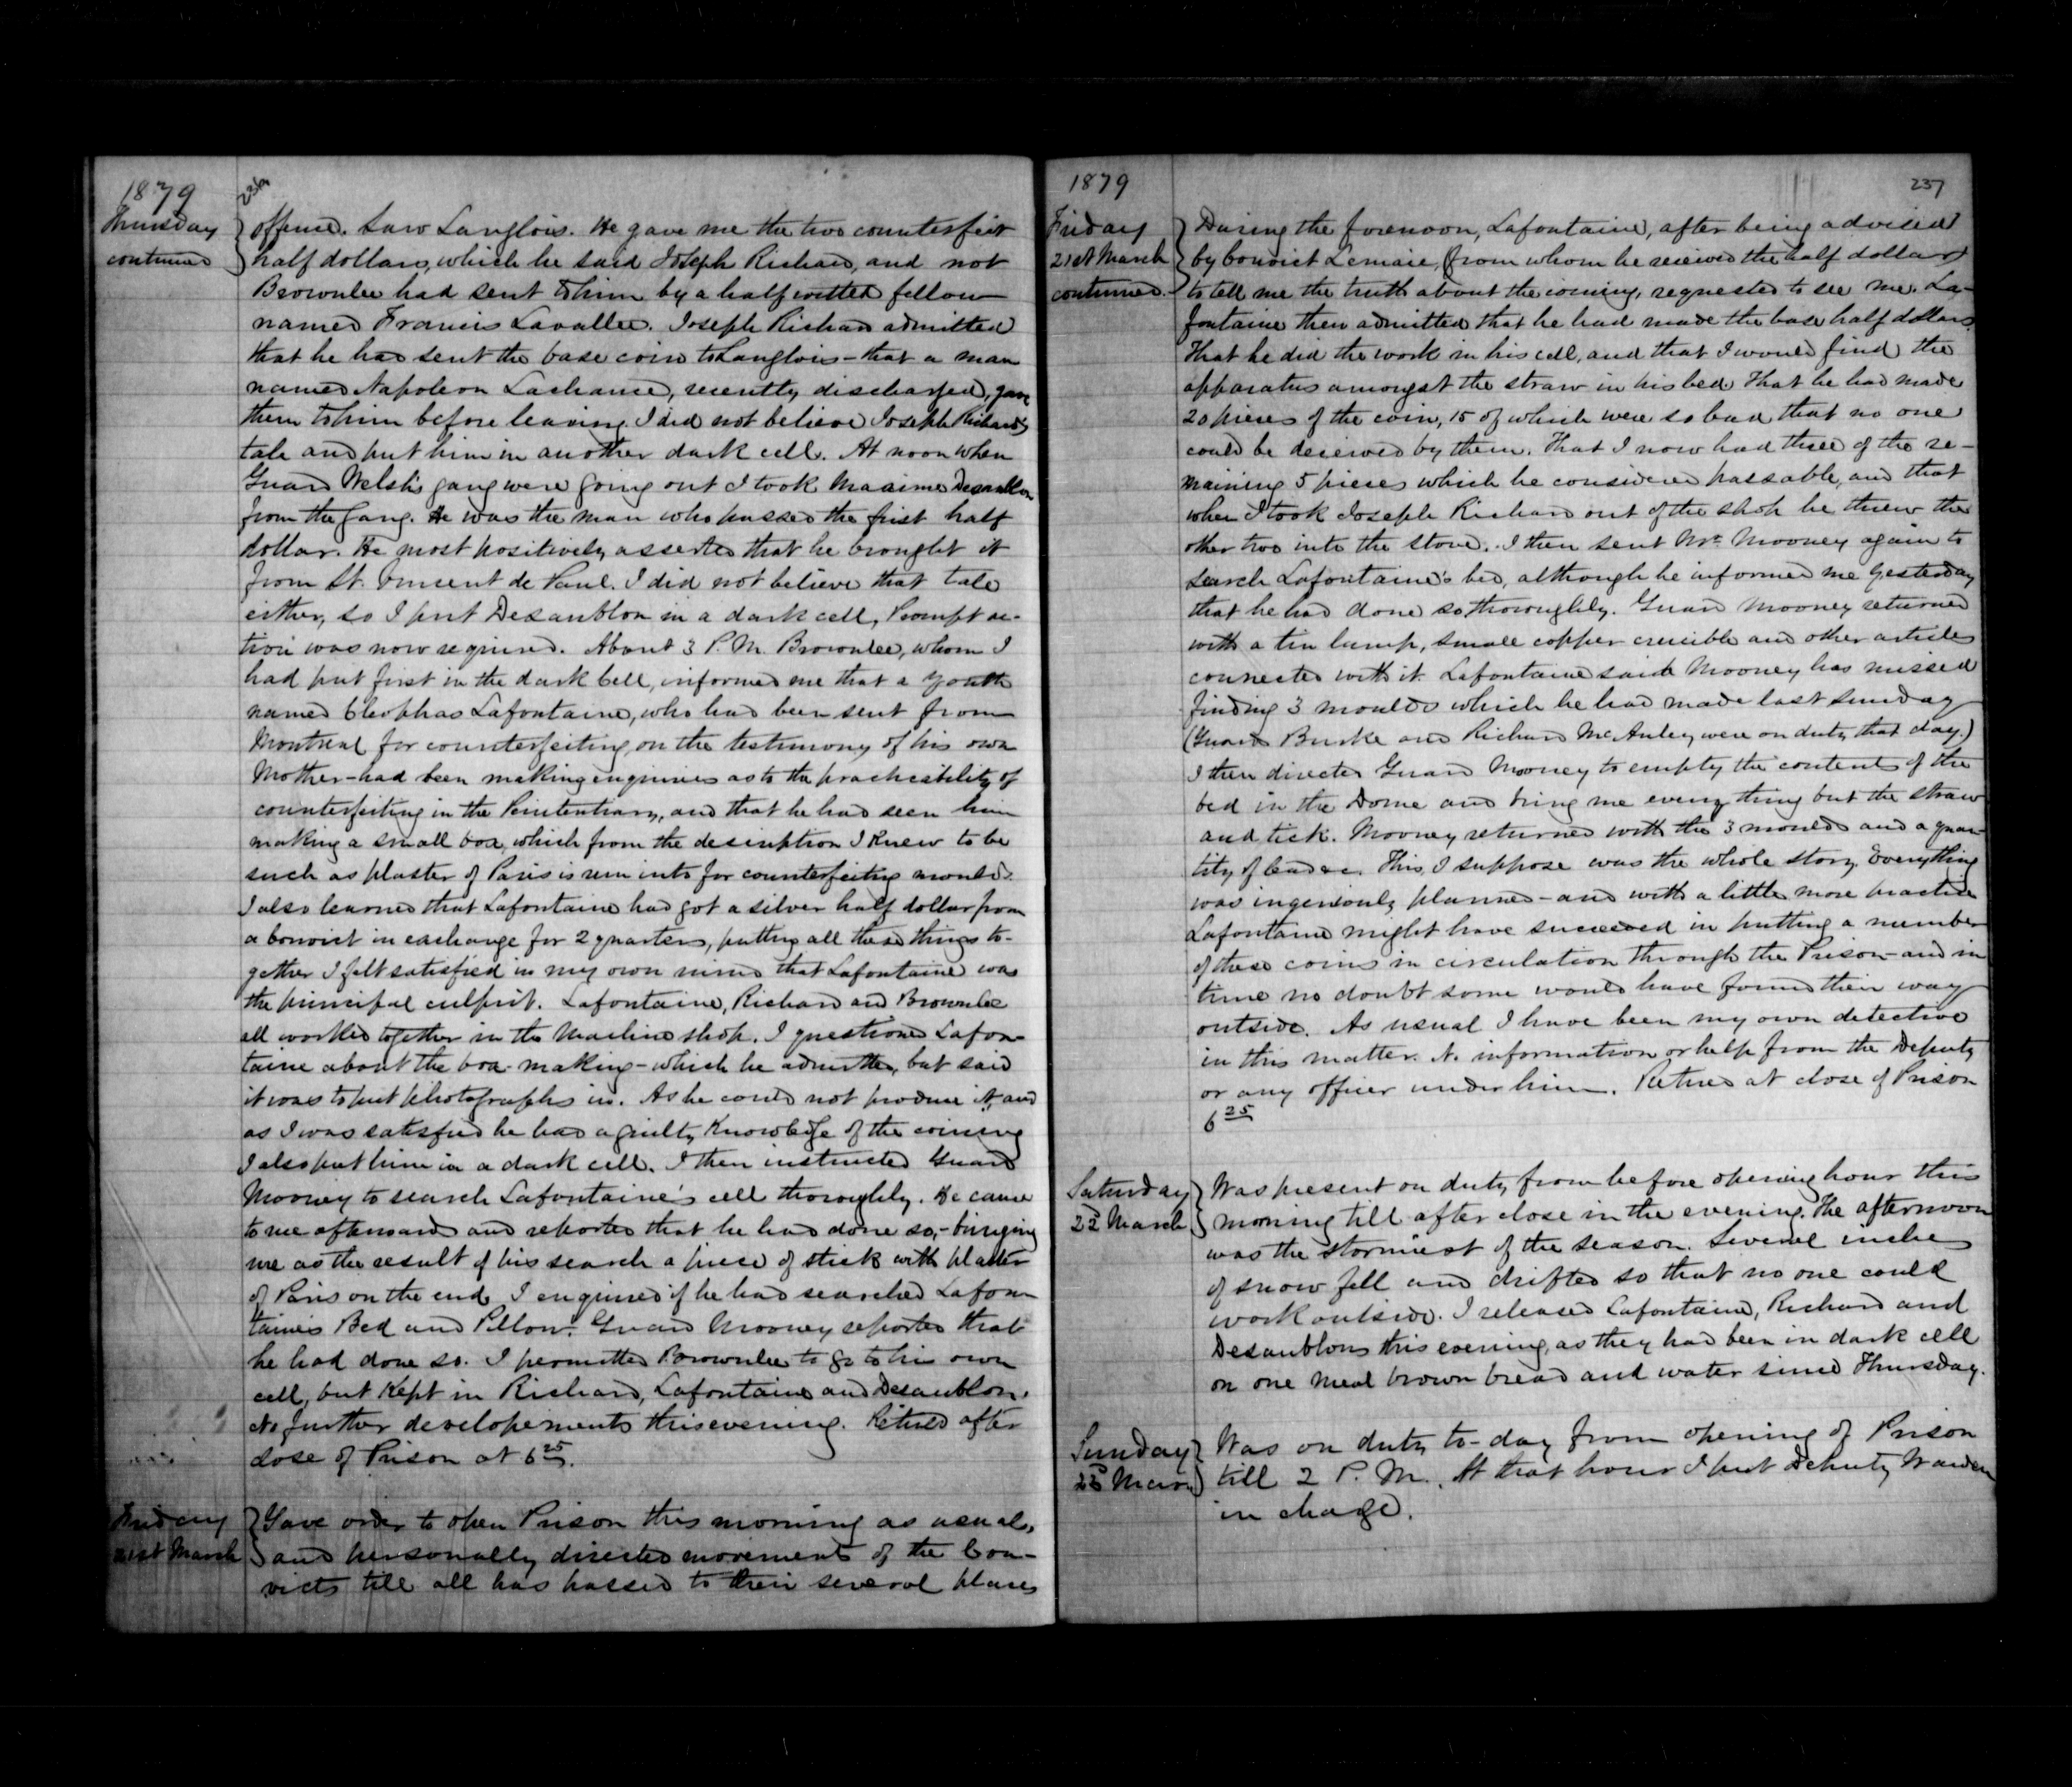 1879
236
Thursday
continued
offence. Saw Langlois. He gave me the two counterfeit
half dollars, which he said Joseph Richard, and not
Brownlee had sent to him by a half witted fellow
named Francis Lavallee. Joseph Richard admitted
that he had sent the base coin to Langlois - that a man
named Napoleon Lachance, recently discharged, gave
them to him before leaving. I did not believe Joseph Richard's
tale and put him in another dark cell. At noon when
Guard Welsh's gang were going out I took Maxime Desaublon
from the gang. He was the man who passed the first half
dollar. He most positively asserted that he brought it
from St. Vincent de Paul. I did not believe that tale
either, so I put Desaublon in a dark cell, Prompt ac-
tion was now required. About 3 P.M. Brownlee, whom I
had put first in the dark Cell, informed me that a youth
named Cleophas Lafontaine, who had been sent from
Montreal for counterfeiting, on the testimony of his own
Mother - had been making enquiries as to the practicability of
counterfeiting in the Penitentiary, and that he had seen him
making a small box, which from the description I knew to be
such as plaster of Paris is run into for counterfeiting moulds.
I also learned that Lafontaine had got a silver half dollar from
a Convict in exchange for 2 quarters, putting all these things to-
gether I felt satisfied in my own mind that Lafontaine was
the principal culprit. Lafontaine, Richard and Brownlee
all worked together in the Machine shop. I questioned Lafon-
taine about the box-making - which he admitted, but said
it was to put photographs in. As he could not produce it, and
as I was satisfied he had a guilty knowledge of the coining
I also put him in a dark cell. I then instructed Guard
Mooney to search Lafontaine's cell thoroughly. He came
to me afterwards and reported that he had done so, - bringing
me as the result of his search a piece of stick with plaster
of Paris on the end. I enquired if he had searched Lafon-
taine's Bed and Pillow. Guard Mooney reported that
he had done so. I permitted Brownlee to go to his own
cell, but kept in Richard, Lafontaine and Desaublon.
No further developements this evening. Retired after
close of Prison at 6 25.
Friday
21st March
Gave order to open Prison this morning as usual,
and personally directed movement of the Con-
victs till all had passed to their several places
1879
237
Friday
21st March
continued.
During the forenoon, Lafontaine, after being advised
by Convict Lemaire, (from whom he received the half dollar)
to tell me the truth about the coining, requested to see me. La-
fontaine then admitted that he had made the base half dollars.
That he did the work in his cell, and that I would find the
apparatus amongst the straw in his bed. That he had made
20 pieces of the coin, 15 of which were so bad that no one
could be deceived by them. That I now had three of the re-
maining 5 pieces which he considered passable, and that
when I took Joseph Richard out of the shop he threw the
other two into the stove. I then sent Mr. Mooney again to
search Lafontaine's bed, although he informed me yesterday
that he had done so thoroughly. Guard Mooney returned
with a tin lamp, small copper crucible and other articles
connected with it. Lafontaine said Mooney has missed
finding 3 moulds which he had made last Sunday
(Guards Burke and Richard McAuley were on duty that day.)
I then directed Guard Mooney to empty the contents of the
bed in the Dome and bring me every thing but the straw
and tick. Mooney returned with the 3 moulds and a quan-
tity of lead &c. This, I suppose was the whole story. Everything
was ingeniously planned - and with a little more practice
Lafontaine might have succeeded in putting a number
of these coins in circulation through the Prison - and in
time no doubt some would have found their way
outside. As usual I have been my own detective
in this matter. No information or help from the Deputy
or any officer under him. Retired at close of Prison
6 25
Saturday
22d March
Was present on duty from before opening hour this
morning till after close in the evening. The afternoon
was the stormiest of the season. Several inches
of snow fell and drifted so that no one could
work outside. I released Lafontaine, Richard and
Desaublons this evening, as they had been in dark cell
on one meal brown bread and water since Thursday.
Sunday
23d March
Was on duty to-day from opening of Prison
till 2 P.M. At that hour I put Deputy Warden
in charge.